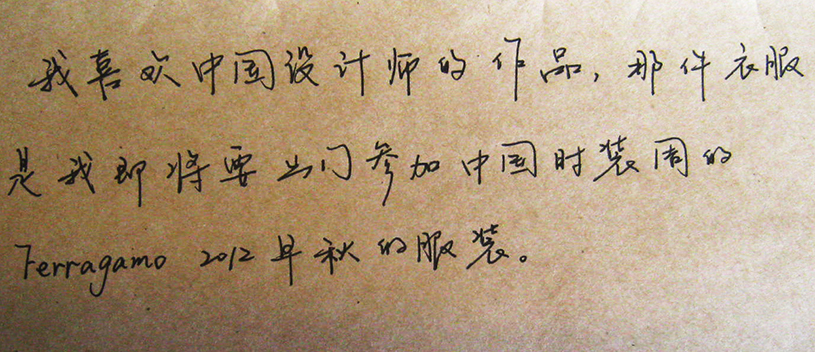 我喜欢中国设计师的作品，那件衣服
是我即将要出门参加中国时装周的
Ferragamo 2012早秋的服装。